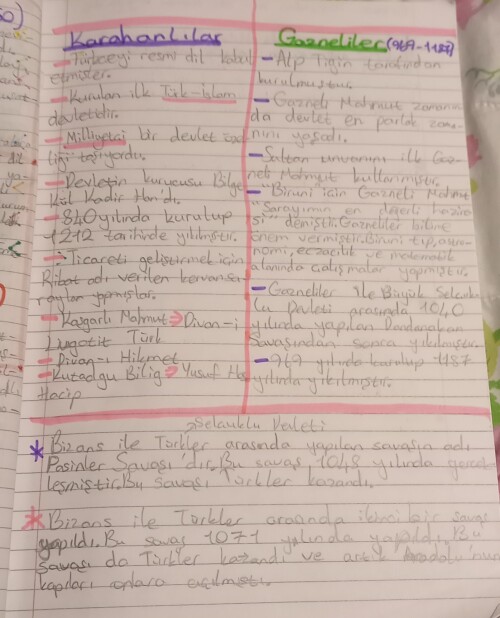 Karahanlılar
Türkçeyi resmi dil kabul
etmişler.
Kurulan ilk Türk-İslam
devletidir.
Milliyetçi bir devlet özel
liği taşıyordu.
Devletin kurucusu Bilge
Kül Kadir Han'dı.
840 yılında kurulup
1212 tarihinde yıkılmıştır.
Ticareti geliştirmek için
Ribat adı verilen kervansa-
raylar yapmışlar.
Kaşgarlı Mahmut ⇒ Divan-ı
Lugatit Türk
Divan-ı Hikmet
Kutadgu Bilig ⇒ Yusuf Has
Hacip
Gazneliler (969-1187)
Alp Tigin tarafından
kurulmuştur.
Gazneli Mahmut zamanın
da devlet en parlak zama-
nını yaşadı.
Sultan unvanını ilk Gaz-
neli Mahmut kullanmıştır.
"Biruni için Gazneli Mahmut
"Sarayımın en değerli hazine
si" demiştir. Gazneliler bilime
önem vermiştir. Biruni tıp, astro-
nomi, eczacılık ve matematik
alanında çalışmalar yapmıştır.
Gazneliler ile Büyük Selçuk-
lu Devleti arasında 1040
yılında yapılan Dandanakan
Savaşından sonra yıkılmıştır.
969 yılında kurulup 1187
yılında yıkılmıştır.
Selçuklu Devleti
* Bizans ile Türkler arasında yapılan savaşın adı
Pasinler Savaşı'dır. Bu savaş 1048 yılında gerçek
leşmiştir. Bu savaşı Türkler kazandı.
* Bizans ile Türkler arasında ikinci bir savaş
yapıldı. Bu savaş 1071 yılında yapıldı. Bu
savaşı da Türkler kazandı ve artık Anadolu'nun
kapıları onlara açılmıştı.